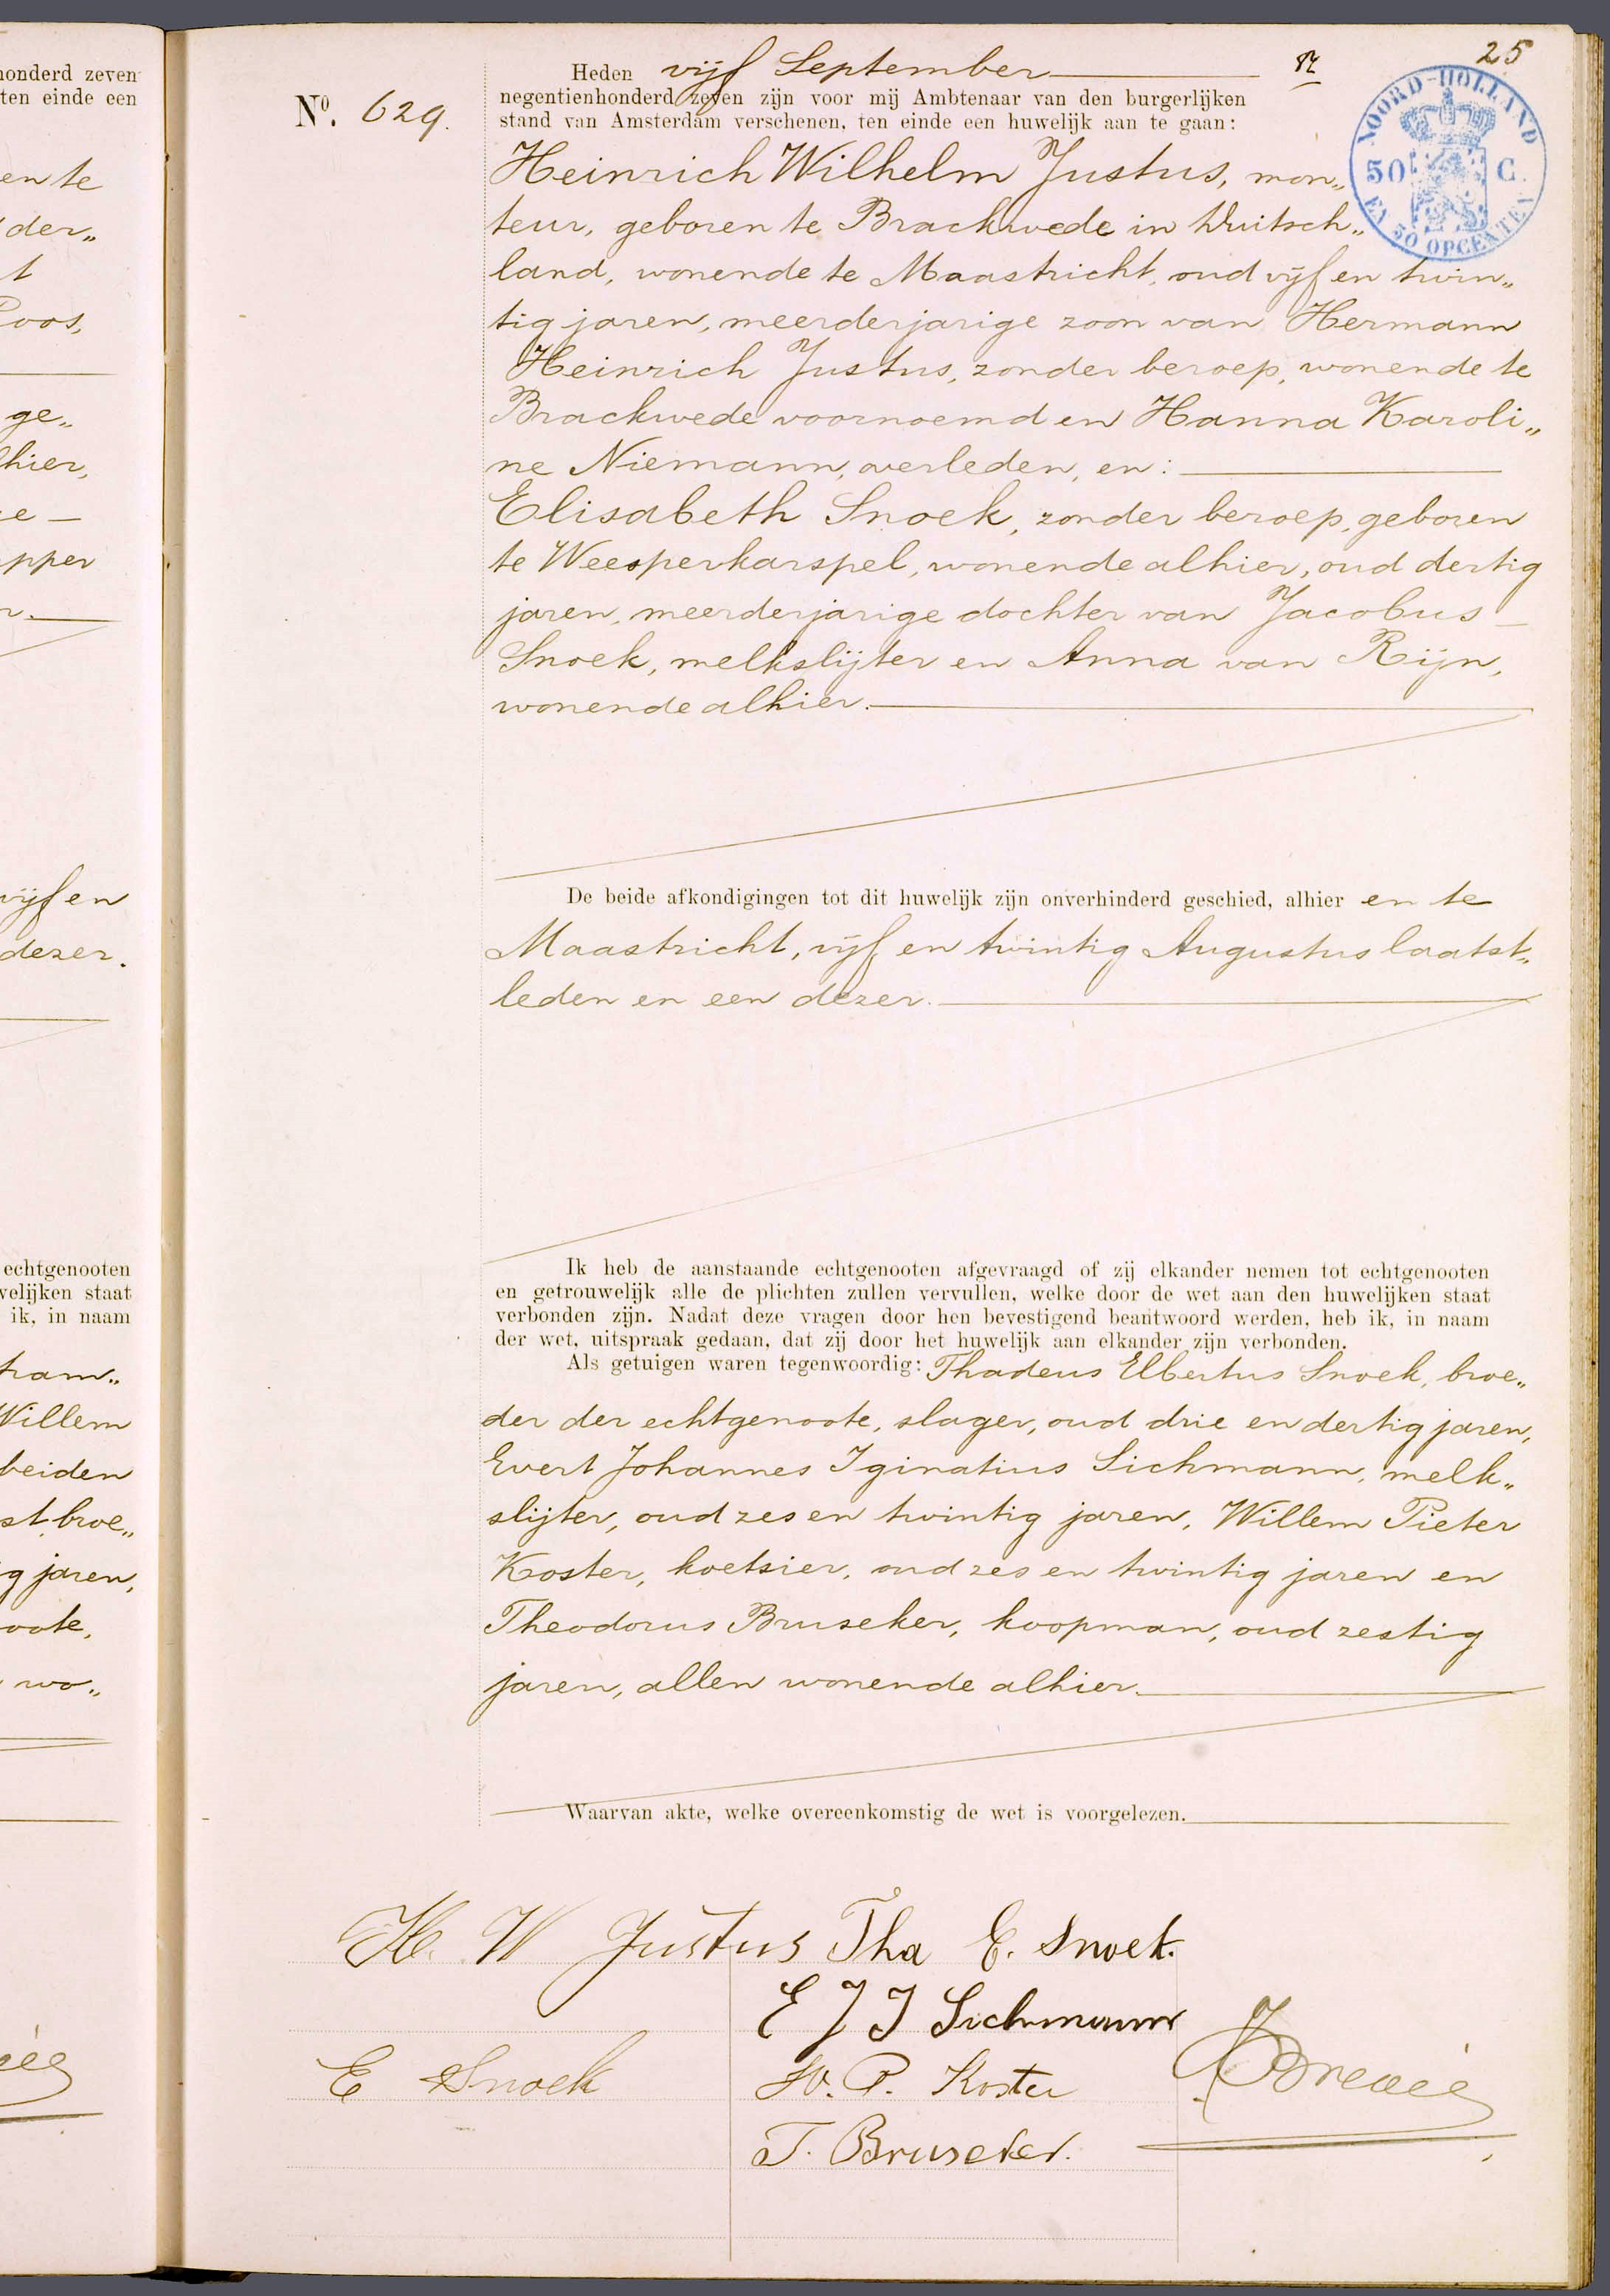 honderd zeven
ten einde een
en te
der„
t
Roos,
ge„
lhier,
e —
epper
r.
vijf en
dezer.
echtgenooten
velijken staat
ik, in naam
ham„
Willem
beiden
st, broe„
g jaren,
oote,
wo„
25
Heden vijf September
negentienhonderd zeven zijn voor mij Ambtenaar van den burgerlijken
Nº. 629.
stand van Amsterdam verschenen, ten einde een huwelijk aan te gaan:
NOORD-HOLLAND
50 C.
EN 50 OPCENTEN
Heinrich Wilhelm Justus, mon„
teur, geboren te Brackwede in Duitsch„
land, wonende te Maastricht, oud vijf en twin„
tig jaren, meerderjarige zoon van Hermann
Heinrich Justus, zonder beroep, wonende te
Brackwede voornoemd en Hanna Karoli„
ne Niemann, overleden, en:
Elisabeth Snoek, zonder beroep, geboren
te Weesperkarspel, wonende alhier, oud dertig
jaren, meerderjarige dochter van Jacobus
Snoek, melkslijter en Anna van Rijn,
wonende alhier.
De beide afkondigingen tot dit huwelijk zijn onverhinderd geschied, alhier en te
Maastricht, vijf en twintig Augustus laatst„
leden en een dezer.
Ik heb de aanstaande echtgenooten afgevraagd of zij elkander nemen tot echtgenooten
en getrouwelijk alle de plichten zullen vervullen, welke door de wet aan den huwelijken staat
verbonden zijn. Nadat deze vragen door hen bevestigend beantwoord werden, heb ik, in naam
der wet, uitspraak gedaan, dat zij door het huwelijk aan elkander zijn verbonden.
Als getuigen waren tegenwoordig: Thadeus Elbertus Snoek, broe„
der der echtgenoote, slager, oud drie en dertig jaren,
Evert Johannes Iginatius Sichmann, melk„
slijter, oud zes en twintig jaren, Willem Pieter
Koster, koetsier, oud zes en twintig jaren en
Theodorus Bruseker, koopman, oud zestig
jaren, allen wonende alhier.
Waarvan akte, welke overeenkomstig de wet is voorgelezen.
H. W Justus Tha E. Snoek.
E J I Sichmann
E Snoek W. P. Koster
T. Bruseker.